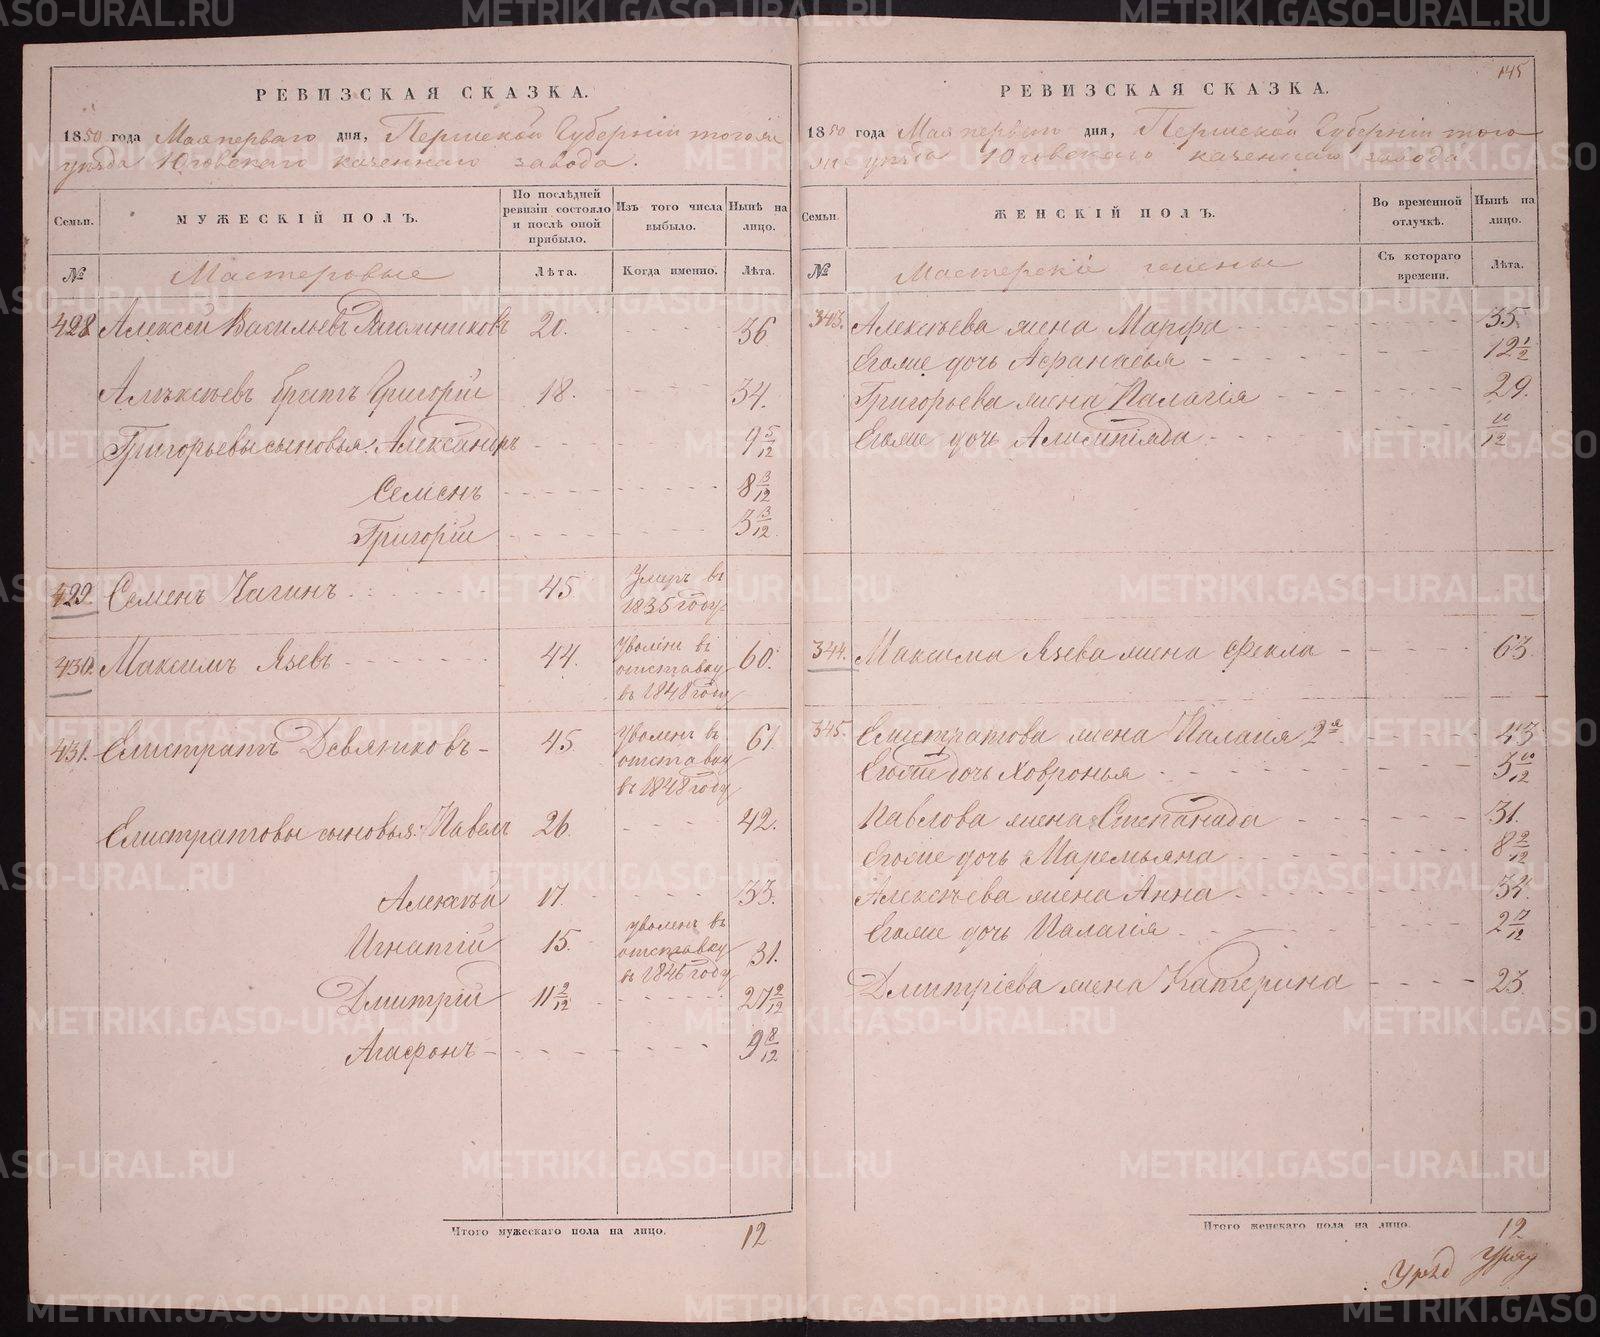 РЕВИЗСКАЯ СКАЗКА.
1850 года Мая перваго дня, Пермской Губерніи тогоже
уѣзда Юговскаго казеннаго завода.
Семьи.
МУЖЕСКІЙ ПОЛЪ.
По послѣдней ревизіи состояло и послѣ оной прибыло.
Изъ того числа выбыло.
Нынѣ на лицо.
№ Мастеровые Лѣта. Когда именно. Лѣта.
428 Алексей Васильевъ 20. 36
Алексѣевъ братъ Григорій 18. 34.
Григорьевы сыновья: Александръ 9 5/12
Семенъ 8 3/12
Григорій 3 3/12
429. Семенъ Чагинъ 45 Умеръ въ 1835 году
430. Максимъ Язевъ 44. Уволенъ въ отставку въ 1848 году 60.
431. Елистратъ Девятковъ 45. Уволенъ въ отставку въ 1848 году 61.
Елистратовы сыновья: Павелъ 26. 42.
Алексѣй 17. 33.
Игнатій 15. уволенъ въ отставку въ 1846 году 31.
Дмитрій 11 2/12 27 2/12
Агафонъ 9 8/12
Итого мужескаго пола на лицо. 12
145
РЕВИЗСКАЯ СКАЗКА.
1850 года Мая перваго дня, Пермской Губерніи того
же уѣзда Юговскаго казеннаго завода.
Семьи.
ЖЕНСКІЙ ПОЛЪ.
Во временной отлучкѣ.
Нынѣ на лицо.
№ Мастерскія жены Съ котораго времени. Лѣта.
343. Алексѣева жена Марфа 35.
Егоже дочь Афанасья 12 1/2
Григорьева жена Палагія 29.
Егоже дочь 10/12
344. Максима Язева жена Фекла 63.
345. Елистратова жена Палагія 2я 43
Егоже дочь Ховронья 5 10/12
Павлова жена Степанида 31.
Егоже дочь Маремьяна 8 2/12
Алексѣева жена Анна 34.
Егоже дочь Палагія 2 7/12
Дмитріева жена Катерина 23.
Итого женскаго пола на лицо. 12
METRIKI.GASO-URAL.RU